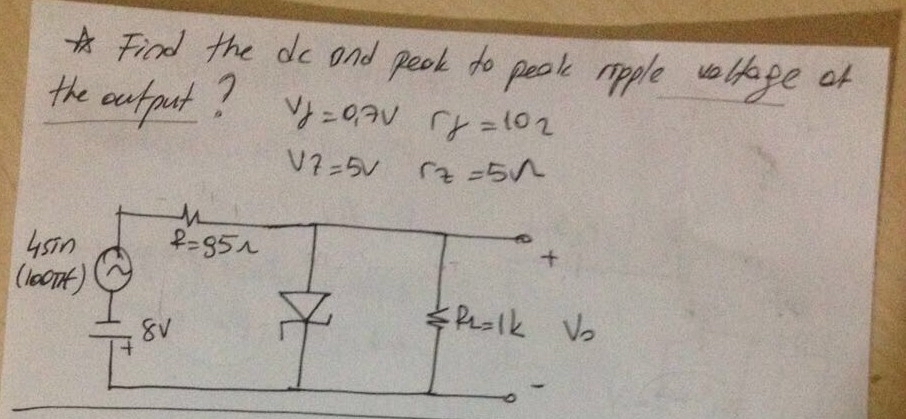 ☆ Find the dc and peak to peak ripple voltage at
the output?
Vγ=0,7V rγ=10Ω
VZ=5V rz=5Ω
4sin
(100πt)
R=95Ω
8V
+
RL=1k
+
Vo
-